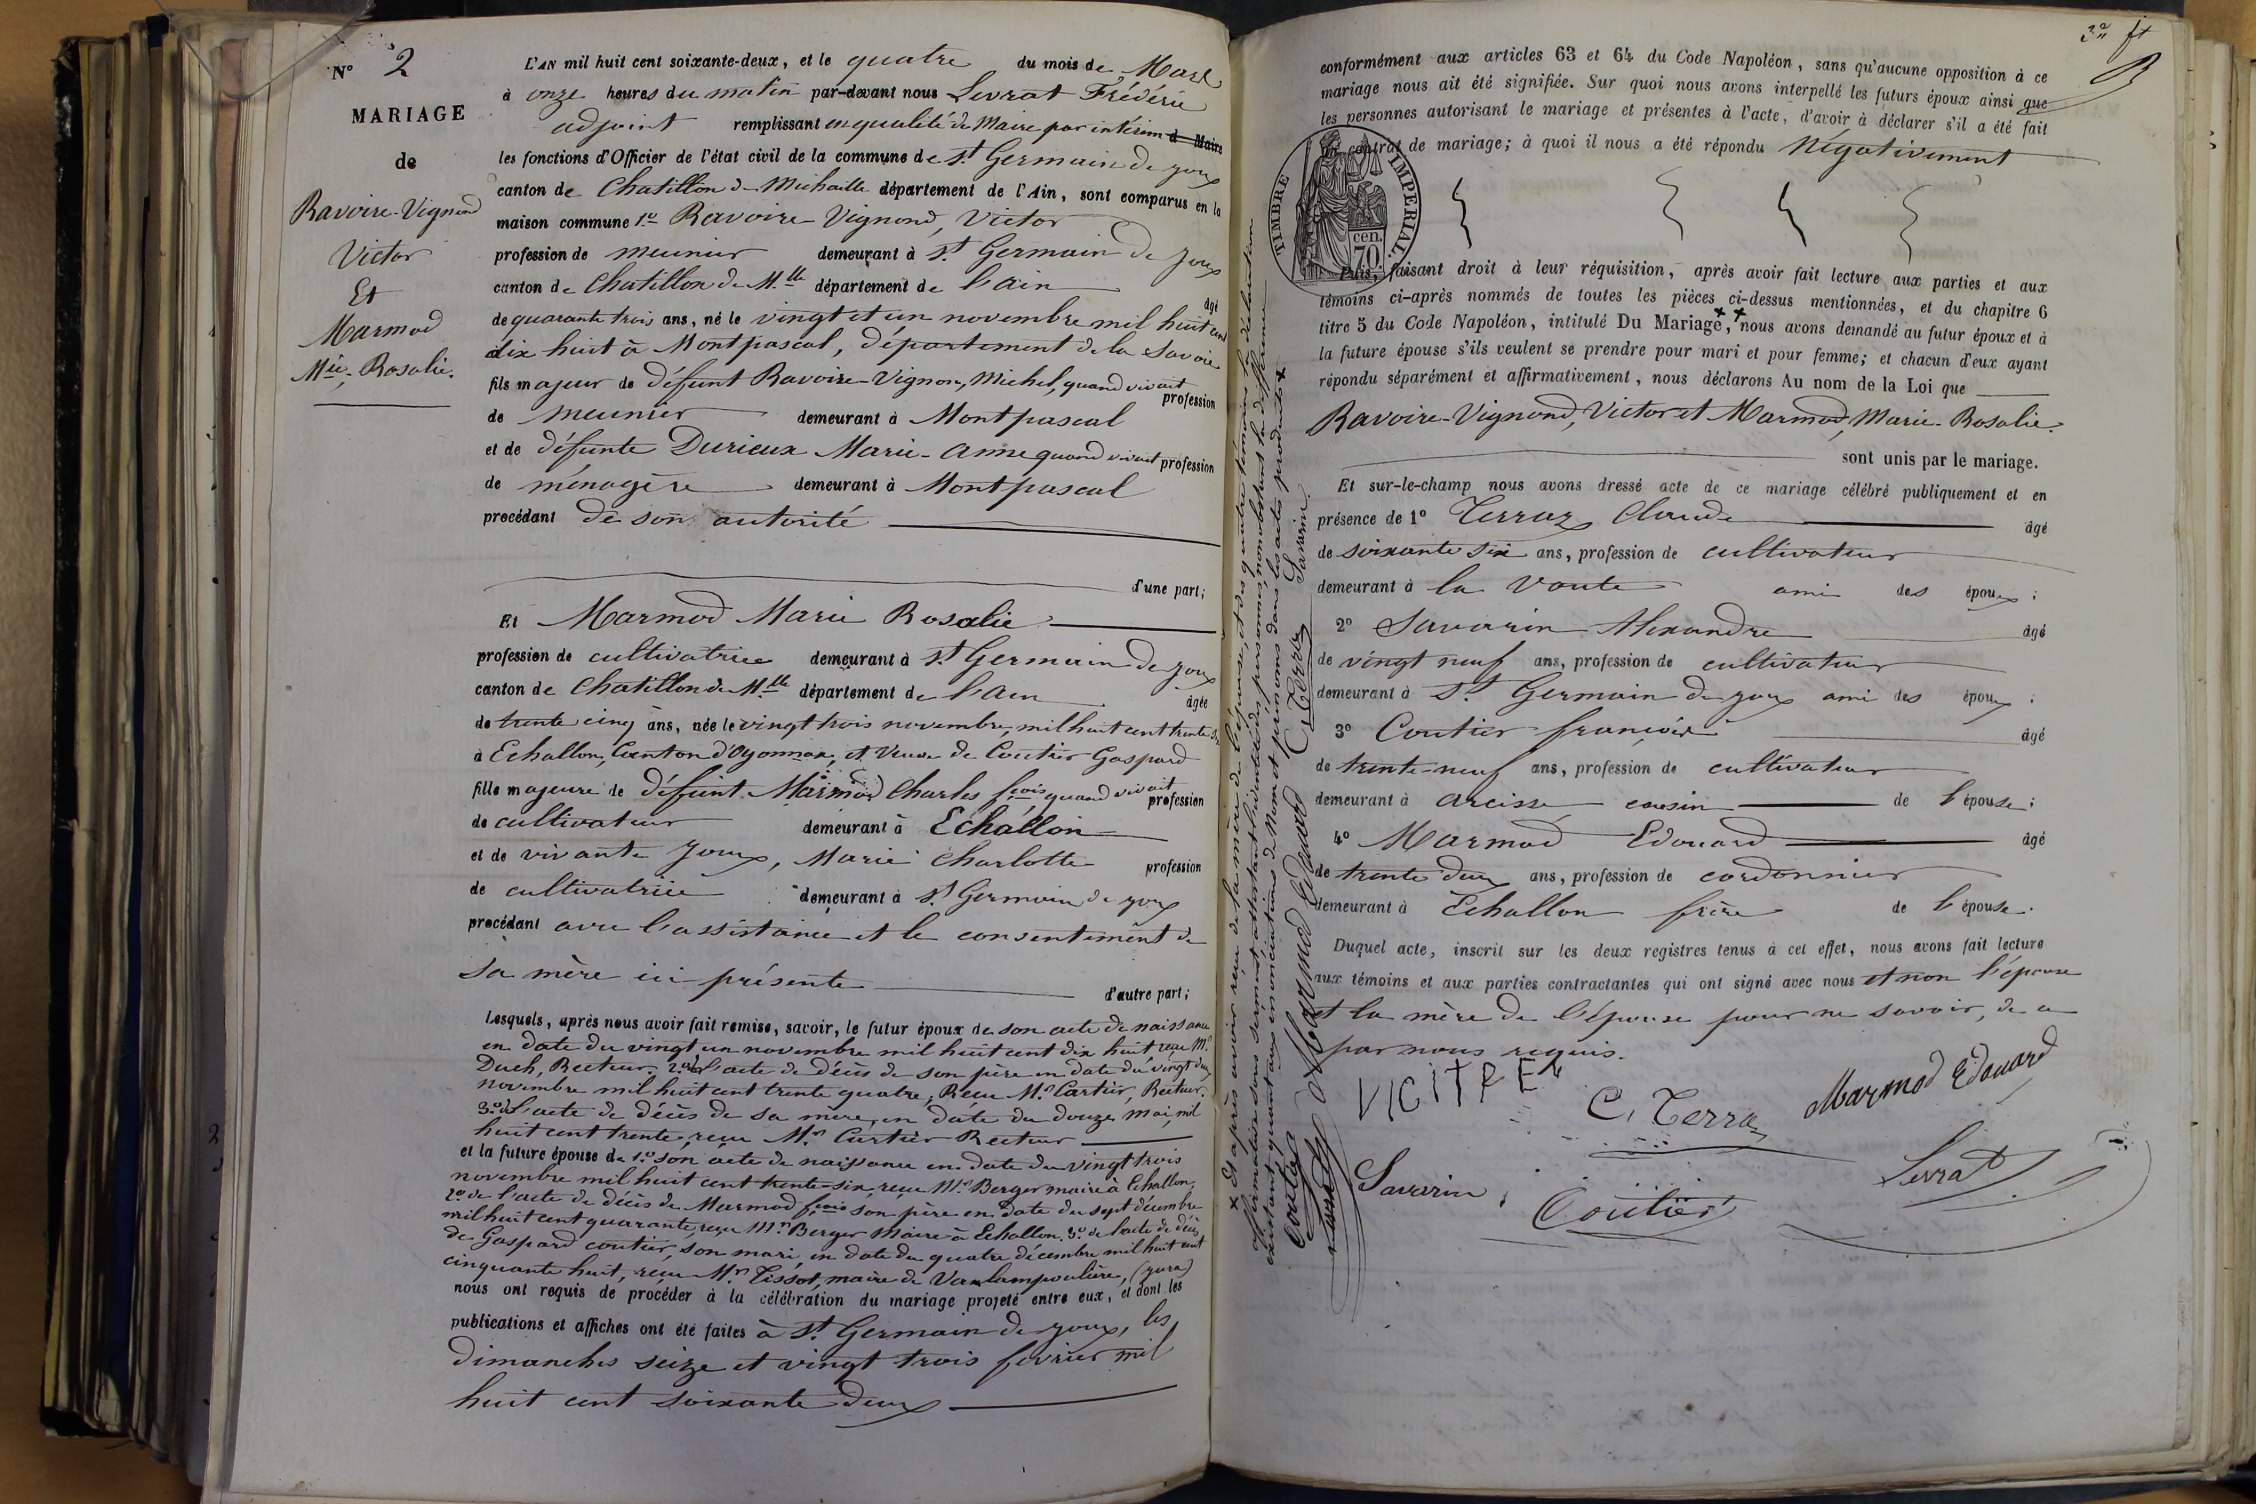 N° 2
MARIAGE
de
Ravoire-Vignond
Victor
Et
Marmod
Mie. Rosalie.
L'AN mil huit cent soixante-deux, et le quatre du mois de Mars
à onze heures du matin par-devant nous Levrat Frédéric
adjoint remplissant en qualité de Maire par intérim d Maire
les fonctions d'Officier de l'état civil de la commune de St Germain de joux
canton de Chatillon de Michaille département de l'Ain, sont comparus en la
maison commune 1° Ravoire-Vignond, Victor
profession de meunier demeurant à St Germain de Joux
canton de Chatillon de Mlle département de l'ain âgé
de quarante trois ans, né le vingt et un novembre mil huit cent
dix huit à Montpascal, département de la Savoie
fils majeur de défunt Ravoire-Vignon, Michel, quand vivait profession
de meunier demeurant à Montpascal
et de défunte Durieux Marie-Anne quand vivait profession
de ménagère demeurant à Montpascal
procédant de son autorité
d'une part;
Et Marmod Marie Rosalie
profession de cultivatrice demeurant à St Germain de joux
canton de Chatillon de Mlle département de l'ain âgée
de trente cinq ans, née le vingt trois novembre, mil huit cent trente six
à Echallon, Canton d'Oyonnax, et Veuve de Coutier Gaspard
fille majeure de défunt Marmod Charles fçois quand vivait profession
de cultivateur demeurant à Echallon
et de vivante Joux, Marie Charlotte profession
de cultivatrice demeurant à St Germain de joux
procédant avec l'assistance et le consentement de
sa mère ici présente
d'autre part;
Lesquels, après nous avoir fait remise, savoir, le futur époux de son acte de naissance
en date du vingt un novembre mil huit cent dix huit reçu Mr
Duch, Recteur, 2° de l'acte de décès de son père en date du vingt deux
novembre mil huit cent trente quatre, Reçu Mr Cartier, Recteur.
3° de l'acte de décès de sa mère, en date du douze mai, mil
huit cent trente, reçu Mr Cartier Recteur
et la future épouse de 1° son acte de naissance en date du vingt trois
novembre mil huit cent trente-six, reçu Mr Berger maire à Echallon,
2° de l'acte de décès de Marmod fçois son père en date du sept décembre
mil huit cent quarante, reçu Mr Berger Maire à Echallon. 3° de l'acte de décès
de Gaspard coutier, son mari, en date du quatre décembre mil huit cent
cinquante huit, reçu Mr Tissot, maire de (jura)
nous ont requis de procéder à la célébration du mariage projeté entre eux, et dont les
publications et affiches ont été faites à St Germain de joux, les
dimanches seize et vingt trois fevrier mil
huit cent soixante deux
conformément aux articles 63 et 64 du Code Napoléon, sans qu'aucune opposition à ce
mariage nous ait été signifiée. Sur quoi nous avons interpellé les futurs époux ainsi que
les personnes autorisant le mariage et présentes à l'acte, d'avoir à déclarer s'il a été fait
un contrat de mariage; à quoi il nous a été répondu Négativement
TIMBRE IMPERIAL.
70 cen.
Puis, faisant droit à leur réquisition, après avoir fait lecture aux parties et aux
témoins ci-après nommés de toutes les pièces ci-dessus mentionnées, et du chapitre 6
titre 5 du Code Napoléon, intitulé Du Mariage, nous avons demandé au futur époux et à
la future épouse s'ils veulent se prendre pour mari et pour femme; et chacun d'eux ayant
répondu séparément et affirmativement, nous déclarons Au nom de la Loi que
Ravoire-Vignond, Victor et Marmod, Marie-Rosalie.
sont unis par le mariage.
Et sur-le-champ nous avons dressé acte de ce mariage célébré publiquement et en
présence de 1° Terraz Claude âgé
de soixante six ans, profession de cultivateur
demeurant à la Voute ami des époux;
2° Savarin Alexandre âgé
de vingt neuf ans, profession de cultivateur
demeurant à St Germain de joux ami des époux;
3° Coutier françois âgé
de trente-neuf ans, profession de cultivateur
demeurant à arcisse cousin de l'épouse;
4° Marmod Edouard âgé
de trente deux ans, profession de cordonnier
demeurant à Echallon frère de l'épouse.
Duquel acte, inscrit sur les deux registres tenus à cet effet, nous avons fait lecture
aux témoins et aux parties contractantes qui ont signé avec nous et non l'épouse
et la mère de l'épouse pour ne savoir, de ce
par nous requis.
VICITRE
C. Terraz
Marmod Edouard
Savarin
Coutier
Levrat
x et après avoir reçu de la mère de l'épouse, et des quatre témoins la déclaration
affirmative sous serment attestant l'identité des personnes, nonobstant la différence
existant quant aux énonciations de Nom et prénoms dans les actes produits x
Coutier Levrat Marmod Edouard C Terraz Savarin